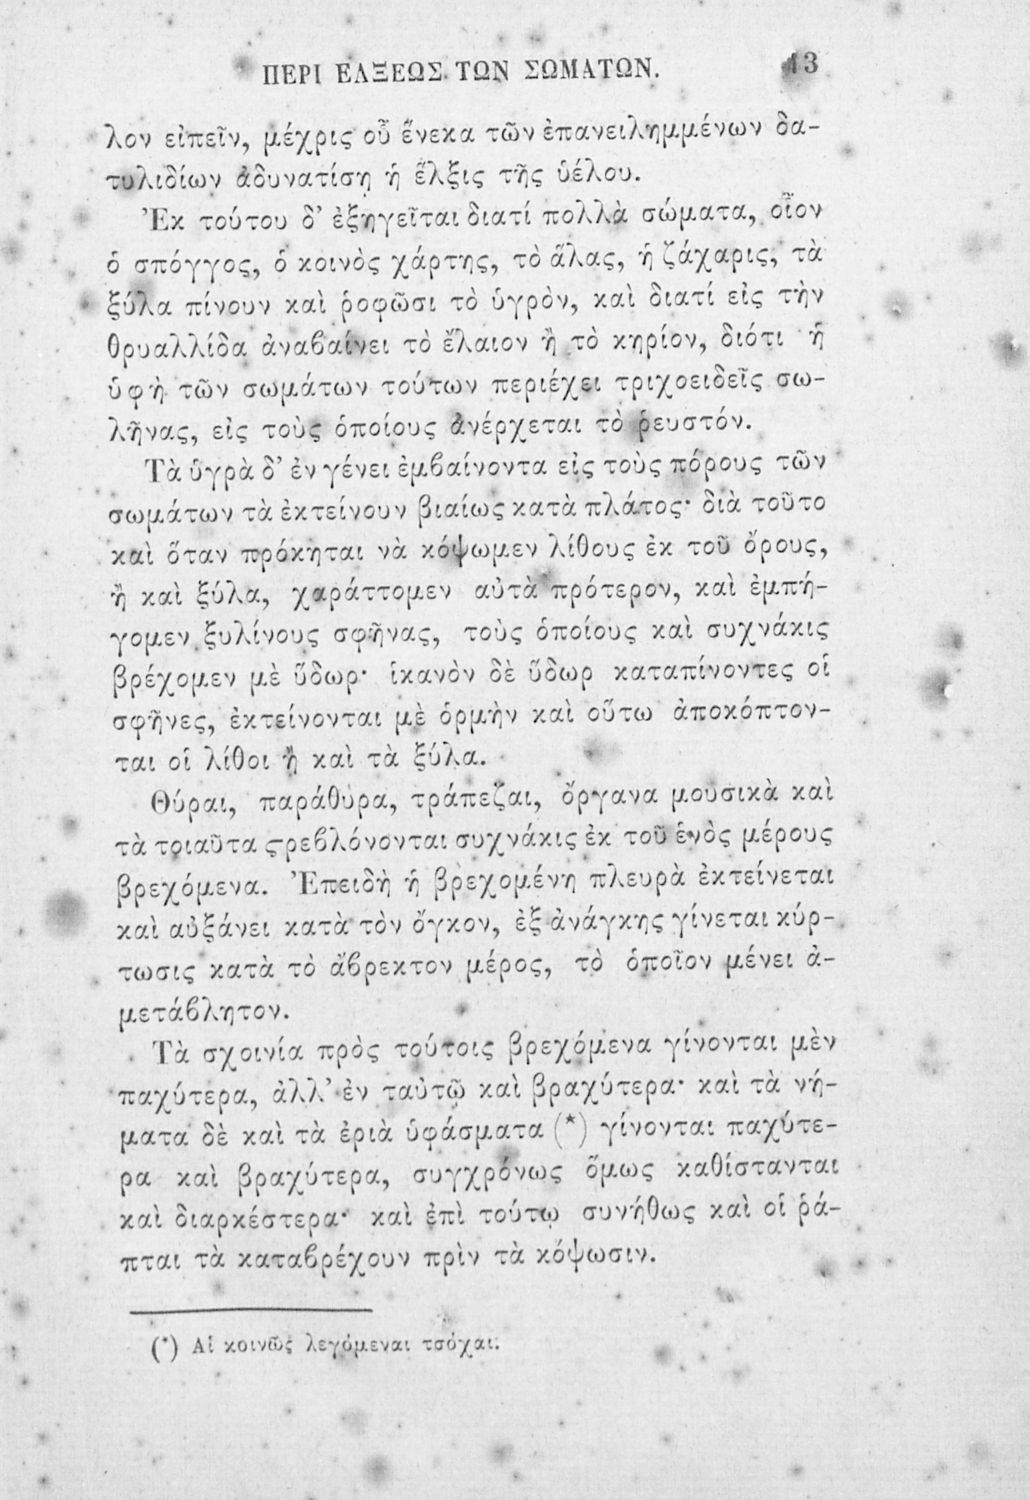 ΠΕΡΙ ΕΛΞΕΩΣ ΤΩΝ ΣΩΜΑΤΩΝ. 13
λον εἰπεῖν, μέχρις οὗ ἕνεκα τῶν ἐπανειλημμένων δα-
τυλιδίων ἀδυνατίσῃ ἡ ἕλξις τῆς ὑέλου.
Ἐκ τούτου δ’ ἐξηγεῖται διατί πολλὰ σώματα, οἷον
ὁ σπόγγος, ὁ κοινὸς χάρτης, τὸ ἅλας, ἡ ζάχαρις, τὰ
ξύλα πίνουν καὶ ῥοφῶσι τὸ ὑγρὸν, καὶ διατί εἰς τὴν
θρυαλλίδα ἀναβαίνει τὸ ἔλαιον ἢ τὸ κηρίον, διότι ἡ
ὑφὴ τῶν σωμάτων τούτων περιέχει τριχοειδεῖς σω-
λῆνας, εἰς τοὺς ὁποίους ἀνέρχεται τὸ ῥευστόν.
Τὰ ὑγρὰ δ’ ἐν γένει ἐμβαίνοντα εἰς τοὺς πόρους τῶν
σωμάτων τὰ ἐκτείνουν βιαίως κατὰ πλάτος· διὰ τοῦτο
καὶ ὅταν πρόκηται νὰ κόψωμεν λίθους ἐκ τοῦ ὄρους,
ἢ καὶ ξύλα, χαράττομεν αὐτὰ πρότερον, καὶ ἐμπή-
γομεν ξυλίνους σφῆνας, τοὺς ὁποίους καὶ συχνάκις
βρέχομεν μὲ ὕδωρ· ἱκανὸν δὲ ὕδωρ καταπίνοντες οἱ
σφῆνες, ἐκτείνονται μὲ ὁρμὴν καὶ οὕτω ἀποκόπτον-
ται οἱ λίθοι ἢ καὶ τὰ ξύλα.
Θύραι, παράθυρα, τράπεζαι, ὄργανα μουσικὰ καὶ
τὰ τοιαῦτα ϛρεβλόνονται συχνάκις ἐκ τοῦ ἑνὸς μέρους
βρεχόμενα. Ἐπειδὴ ἡ βρεχομένη πλευρὰ ἐκτείνεται
καὶ αὐξάνει κατὰ τὸν ὄγκον, ἐξ ἀνάγκης γίνεται κύρ-
τωσις κατὰ τὸ ἄβρεκτον μέρος, τὸ ὁποῖον μένει ἀ-
μετάβλητον.
Τὰ σχοινία πρὸς τούτοις βρεχόμενα γίνονται μὲν
παχύτερα, ἀλλ’ ἐν ταὐτῷ καὶ βραχύτερα· καὶ τὰ νή-
ματα δὲ καὶ τὰ ἐριὰ ὑφάσματα (*) γίνονται παχύτε-
ρα καὶ βραχύτερα, συγχρόνως ὅμως καθίστανται
καὶ διαρκέστερα· καὶ ἐπὶ τούτῳ συνήθως καὶ οἱ ῥά-
πται τὰ καταβρέχουν πρὶν τὰ κόψωσιν.
(*) Αἱ κοινῶς λεγόμεναι τσόχαι.